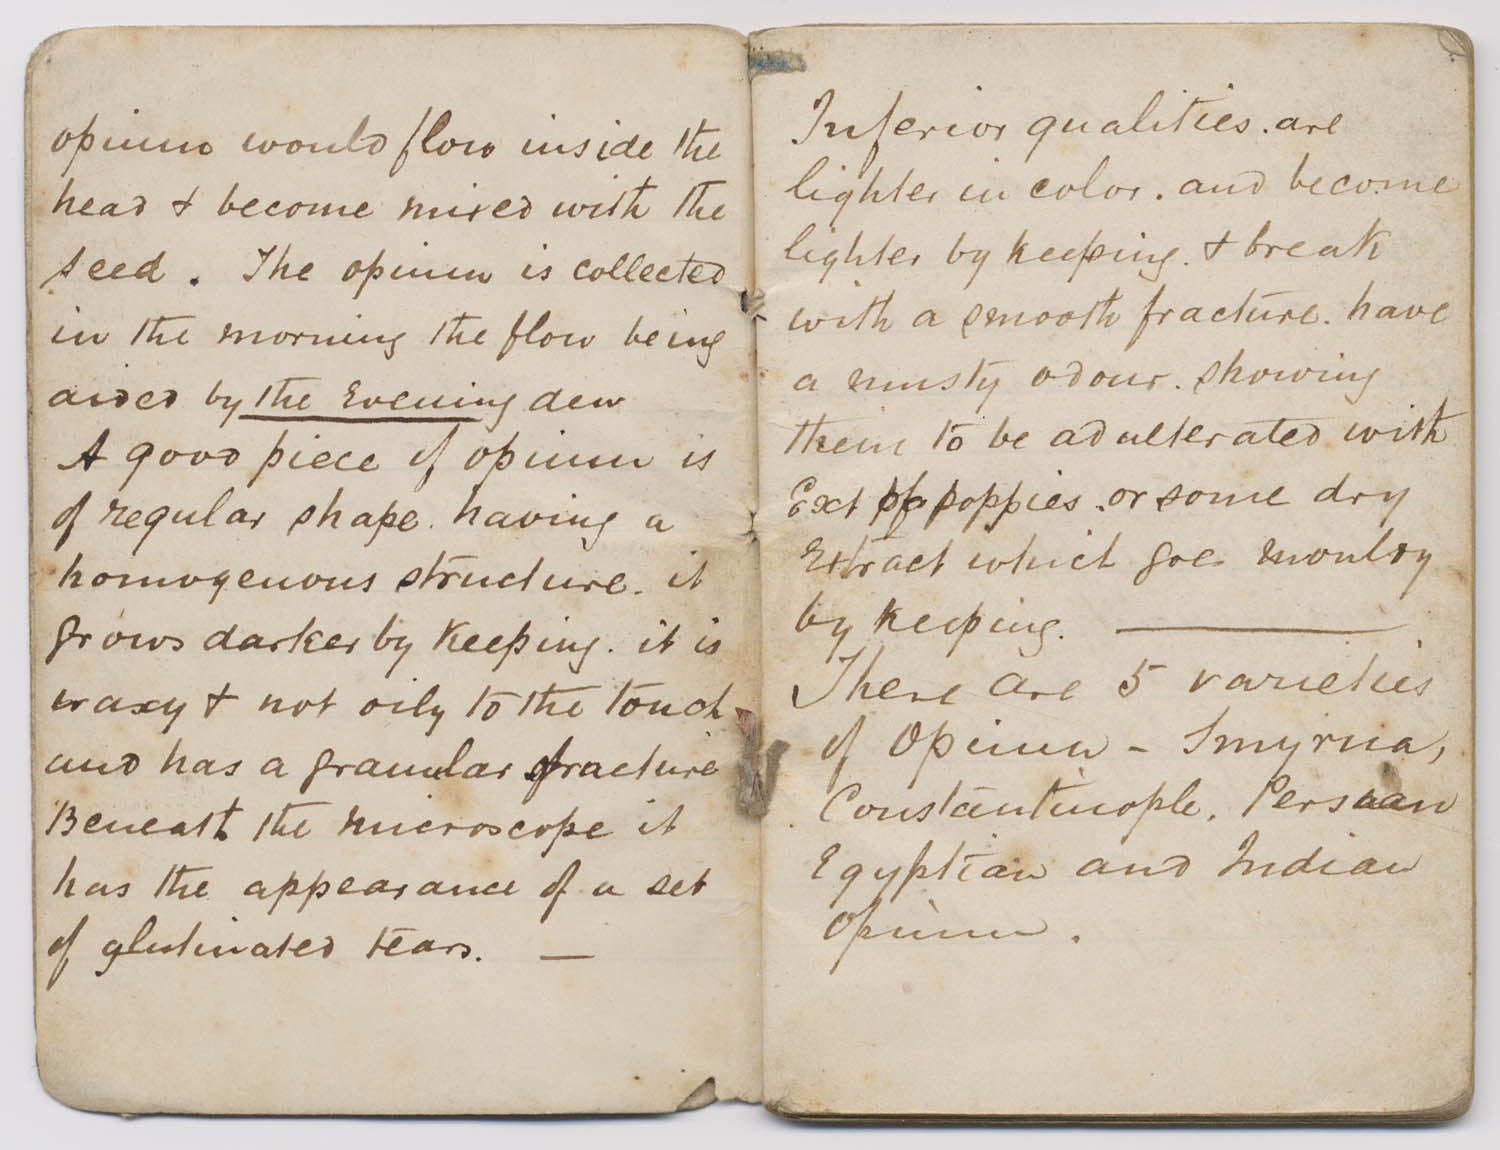 opium would flow inside the
head & become mixed with the
seed. The opium is collected
in the morning the flow being
aided by the Evening dew
A good piece of opium is
of regular shape. having a
homogenous structure. it
grows darker by keeping. it is
waxy & not oily to the touch
and has a granular fracture
Beneath the microscope it
has the appearance of a set
of glutinated tears. —
Inferior qualities. are
lighter in color. and become
lighter by keeping. & break
with a smooth fracture. have
a musty odour. showing
them to be adulterated with
Ext of poppies. or some dry
Extract which goes mouldy
by keeping. —
There are 5 varieties
of Opium - Smyrna,
Constantinople, Persian
Egyptian and Indian
Opium.